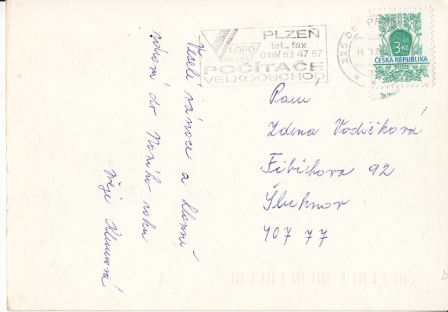 Veselé vánoce a šťastné
vykročení do Nového roku
přeje Klimešová
PLZEŇ
tel., fax
019/53 47 57
LOPO
POČÍTAČE
VELKOOBCHOD
3 Kč
ČESKÁ REPUBLIKA
Paní
Zdena Vodičková
Fibichova 92
Šluknov
407 77